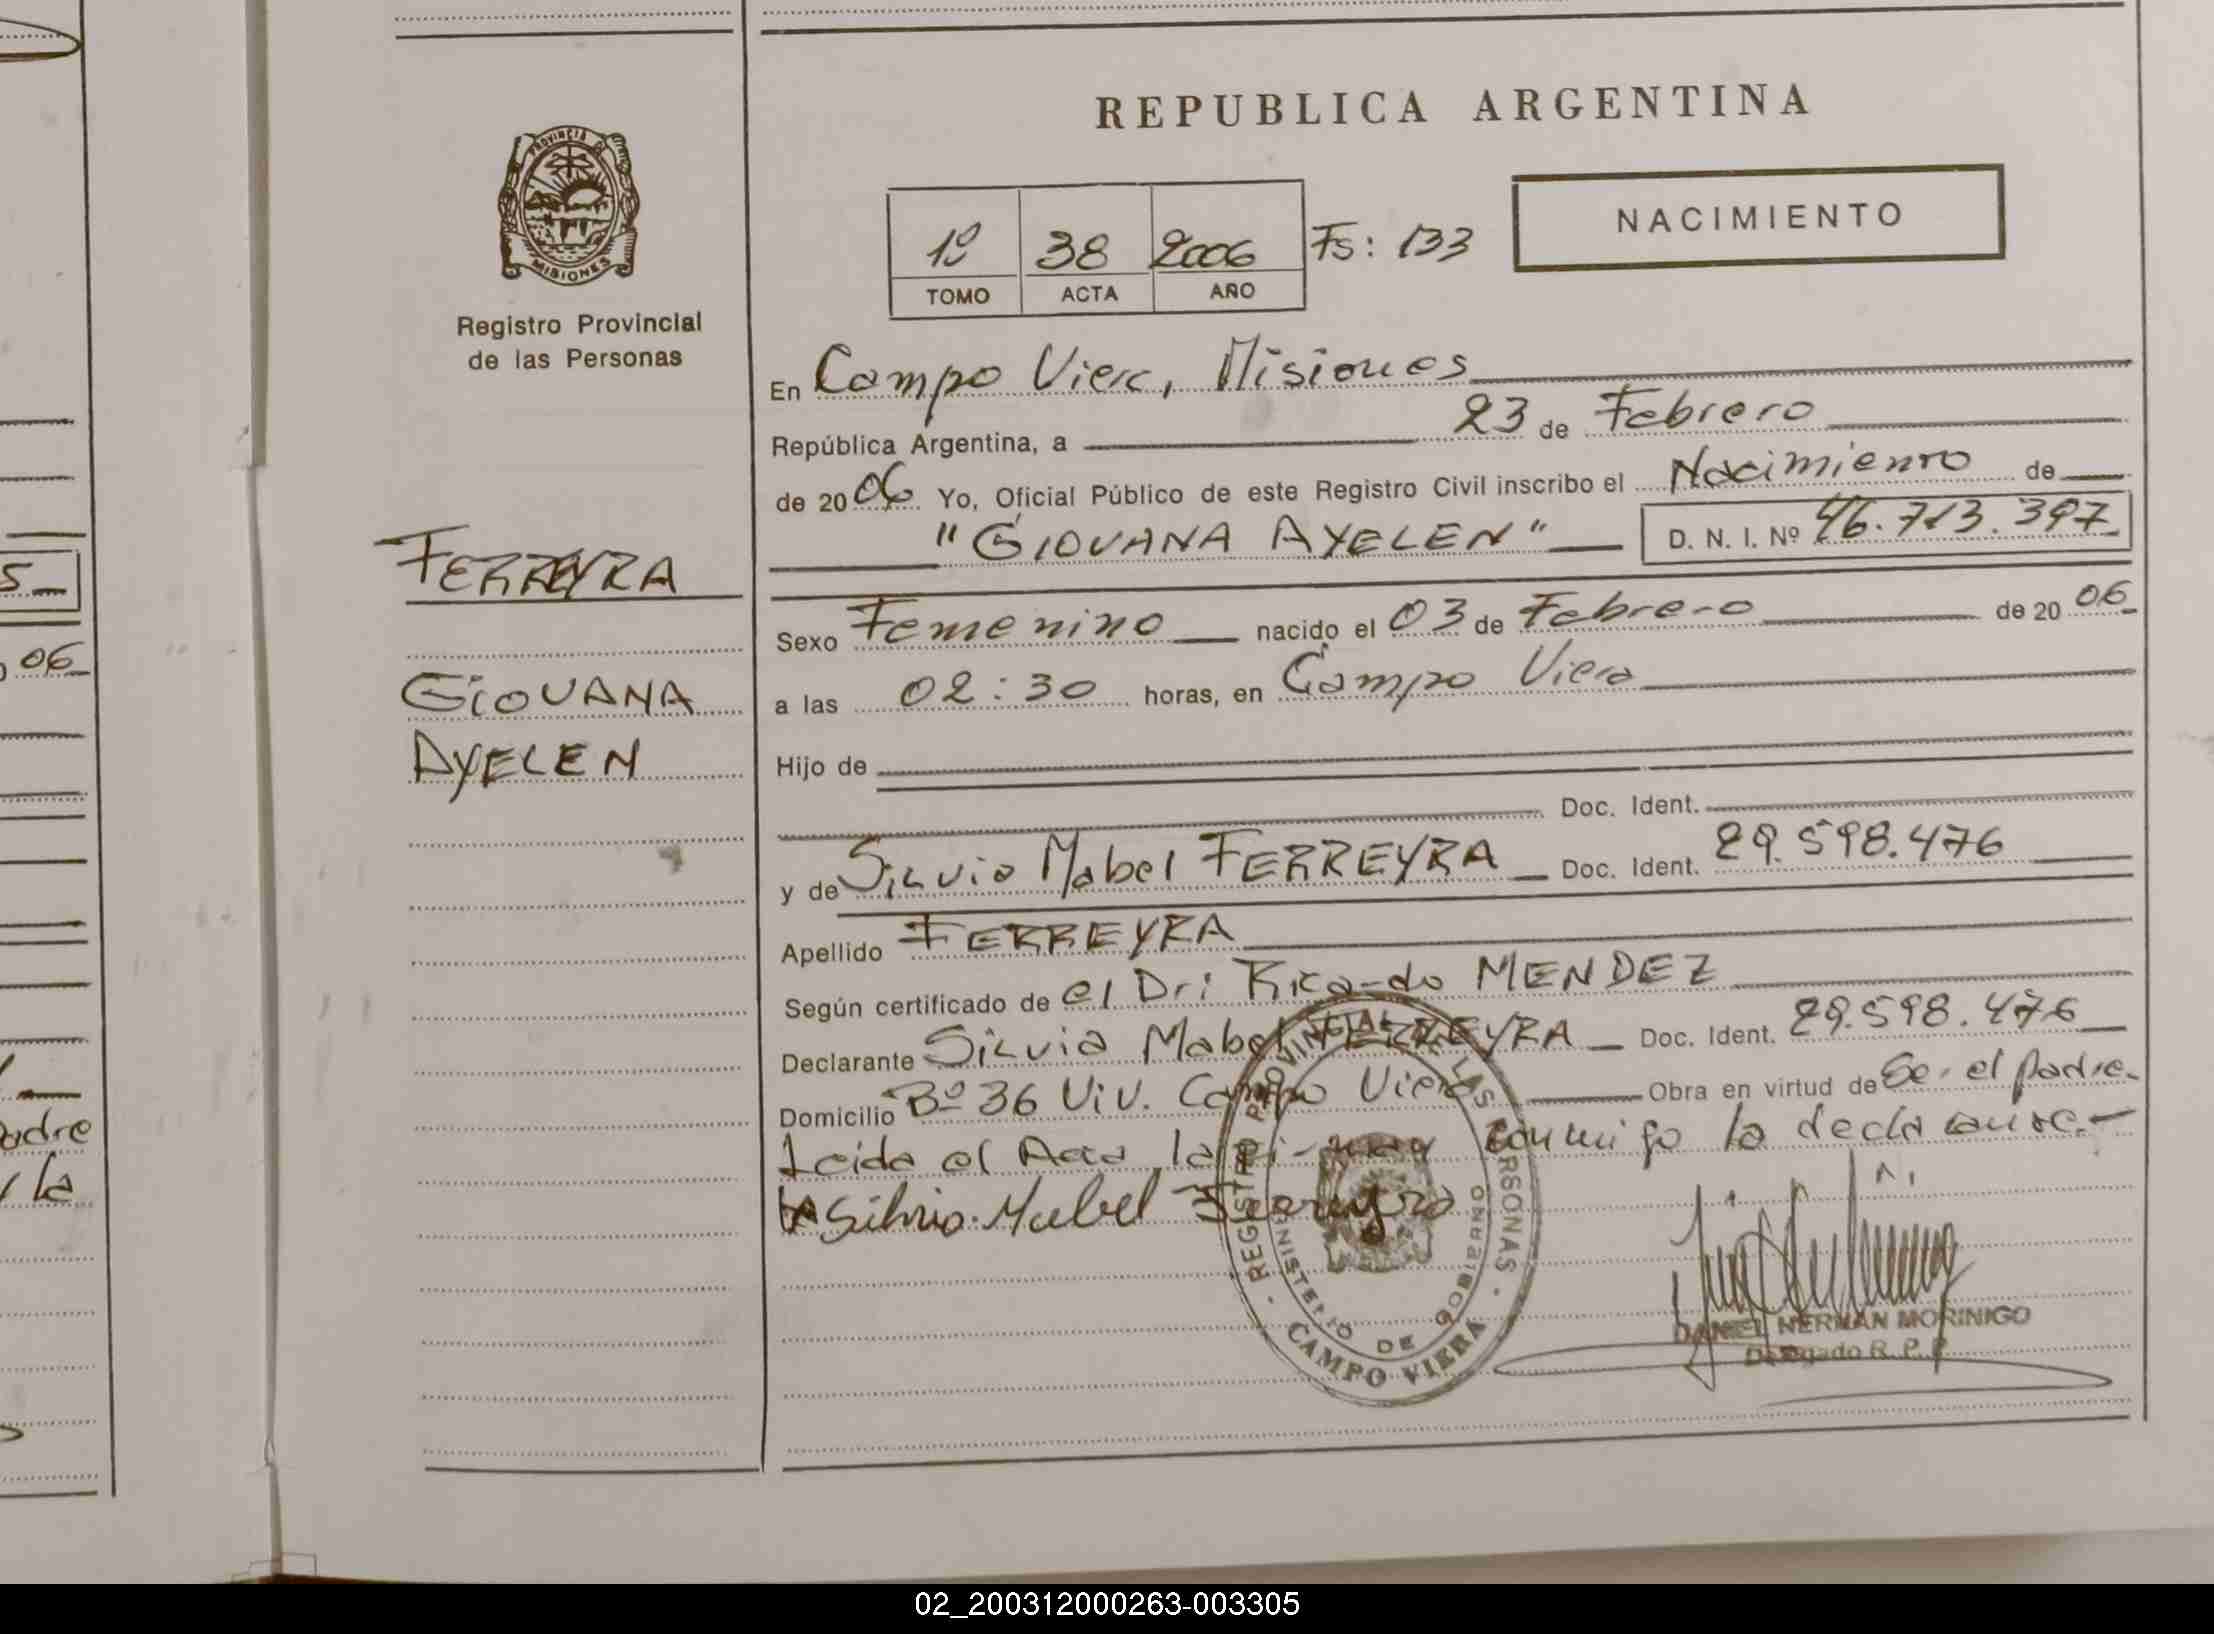 REPUBLICA ARGENTINA
PROVINCIA DE
MISIONES
Registro Provincial
de las Personas
NACIMIENTO
1º 38 2006 Fs: 133
TOMO ACTA AÑO
En Campo Viera, Misiones
República Argentina, a 23 de Febrero
de 2006 Yo, Oficial Público de este Registro Civil inscribo el Nacimiento de
"GIOVANA AYELEN" D. N. I. Nº 46.713.397
FERREYRA
GIOVANA
AYELEN
Sexo Femenino nacido el 03 de Febrero de 20 06
a las 02:30 horas, en Campo Viera
Hijo de
Doc. Ident.
y de Silvia Mabel FERREYRA Doc. Ident. 29.598.476
Apellido FERREYRA
Según certificado de el Dr: Ricardo MENDEZ
Declarante Silvia Mabel FERREYRA Doc. Ident. 29.598.476
Domicilio Bº 36 Viv. Campo Viera Obra en virtud de Ser el padre.
Leida el Acta, la firman conmigo la declarante.-
Silvia Mabel Ferreyra
REGISTRO PROVINCIAL DE LAS PERSONAS
MINISTERIO DE GOBIERNO
CAMPO VIERA
DANIEL HERNAN MORINIGO
Delegado R. P. P.
5
06
adre
la
02_200312000263-003305